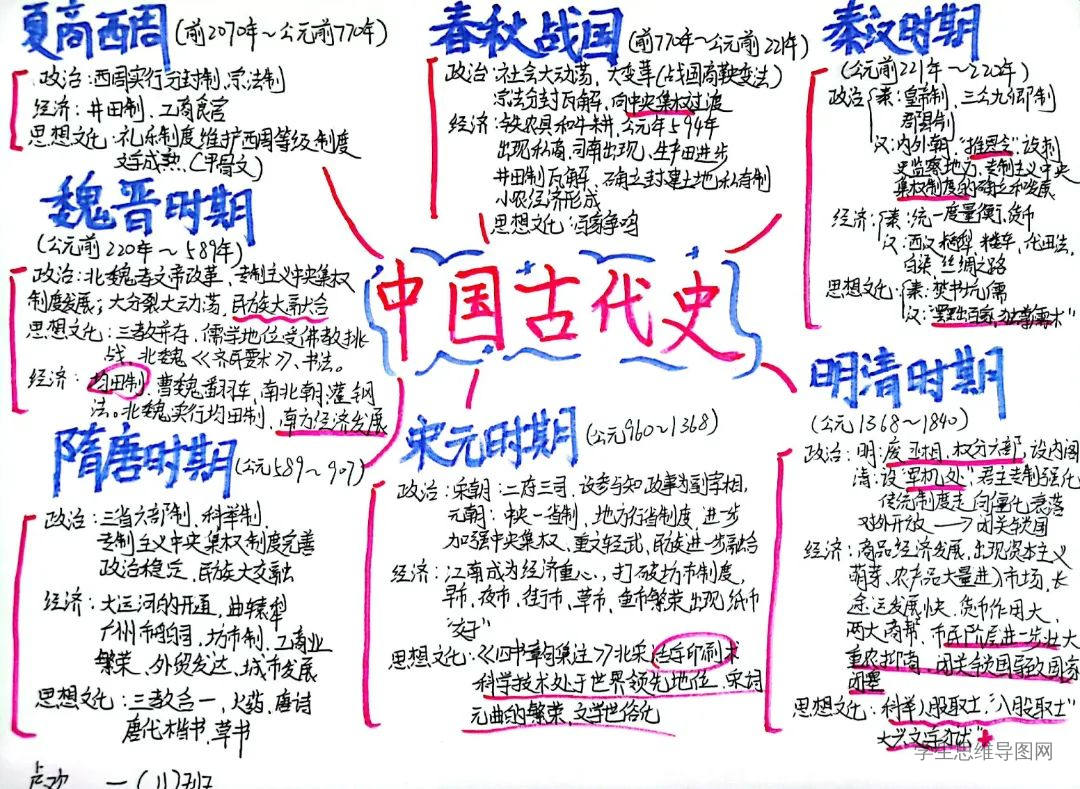 夏商西周(前2070年~公元前770年)
政治:西周实行分封制,宗法制
经济:井田制、工商食官
思想文化:礼乐制度维护西周等级制度
文字成熟(甲骨文)
春秋战国(前770年~公元前221年)
政治:社会大动荡,大变革(战国商鞅变法)
宗法分封瓦解,向中央集权过渡
经济:铁农具和牛耕,公元年594年
出现私商,司南出现,生产进步
井田制瓦解,确立封建土地私有制
小农经济形成
思想文化:百家争鸣
秦汉时期
(公元前221年~220年)
政治 秦:皇帝制,三公九卿制
郡县制
汉:内外朝,"推恩令"设刺
史监察地方,专制主义中央
集权制度的确立和发展
经济:秦:统一度量衡,货币
汉:西汉 耦犁 耧车,代田法,
白渠,丝绸之路
思想文化:秦:焚书坑儒
汉:"罢黜百家,独尊儒术"
魏晋时期
(公元前220年~589年)
政治:北魏孝文帝改革,专制主义中央集权
制度发展;大分裂大动荡,民族大融合
思想文化:三教并存,儒学地位受佛教挑
战,北魏《齐民要术》、书法。
经济:均田制,曹魏翻车,南北朝:灌钢
法。北魏实行均田制,南方经济发展
中国古代史
隋唐时期(公元589~907)
政治:三省六部制,科举制,
专制主义中央集权制度完善
政治稳定,民族大交融
经济:大运河的开通,曲辕犁
广州市舶司,坊市制,工商业
繁荣,外贸发达,城市发展
思想文化:三教合一,火药,唐诗
唐代楷书,草书
宋元时期(公元960~1368)
政治:宋朝:二府三司,设参知政事为副宰相,
元朝:中央一省制,地方行省制度,进步
加强中央集权,重文轻武,民族进步融合
经济:江南成为经济重心,打破坊市制度,
早市,夜市,街市,草市,鱼市繁荣出现纸币
"交子"
思想文化:《四书章句集注》北宋活字印刷术
科学技术处于世界领先地位,宋词
元曲的繁荣,文学世俗化
明清时期
(公元1368~1840)
政治:明:废丞相,权分六部,设内阁
清:设"军机处",君主专制强化
传统制度走向僵化衰落
对外开放→闭关锁国
经济:商品经济发展,出现资本主义
萌芽,农产品大量进入市场,长
途运发展快,货币作用大,
两大商帮,市民阶层进一步壮大
重农抑商,闭关锁国导致国家
闭塞
思想文化:科举八股取士,"八股取士"
大兴文字狱"
学生思维导图网